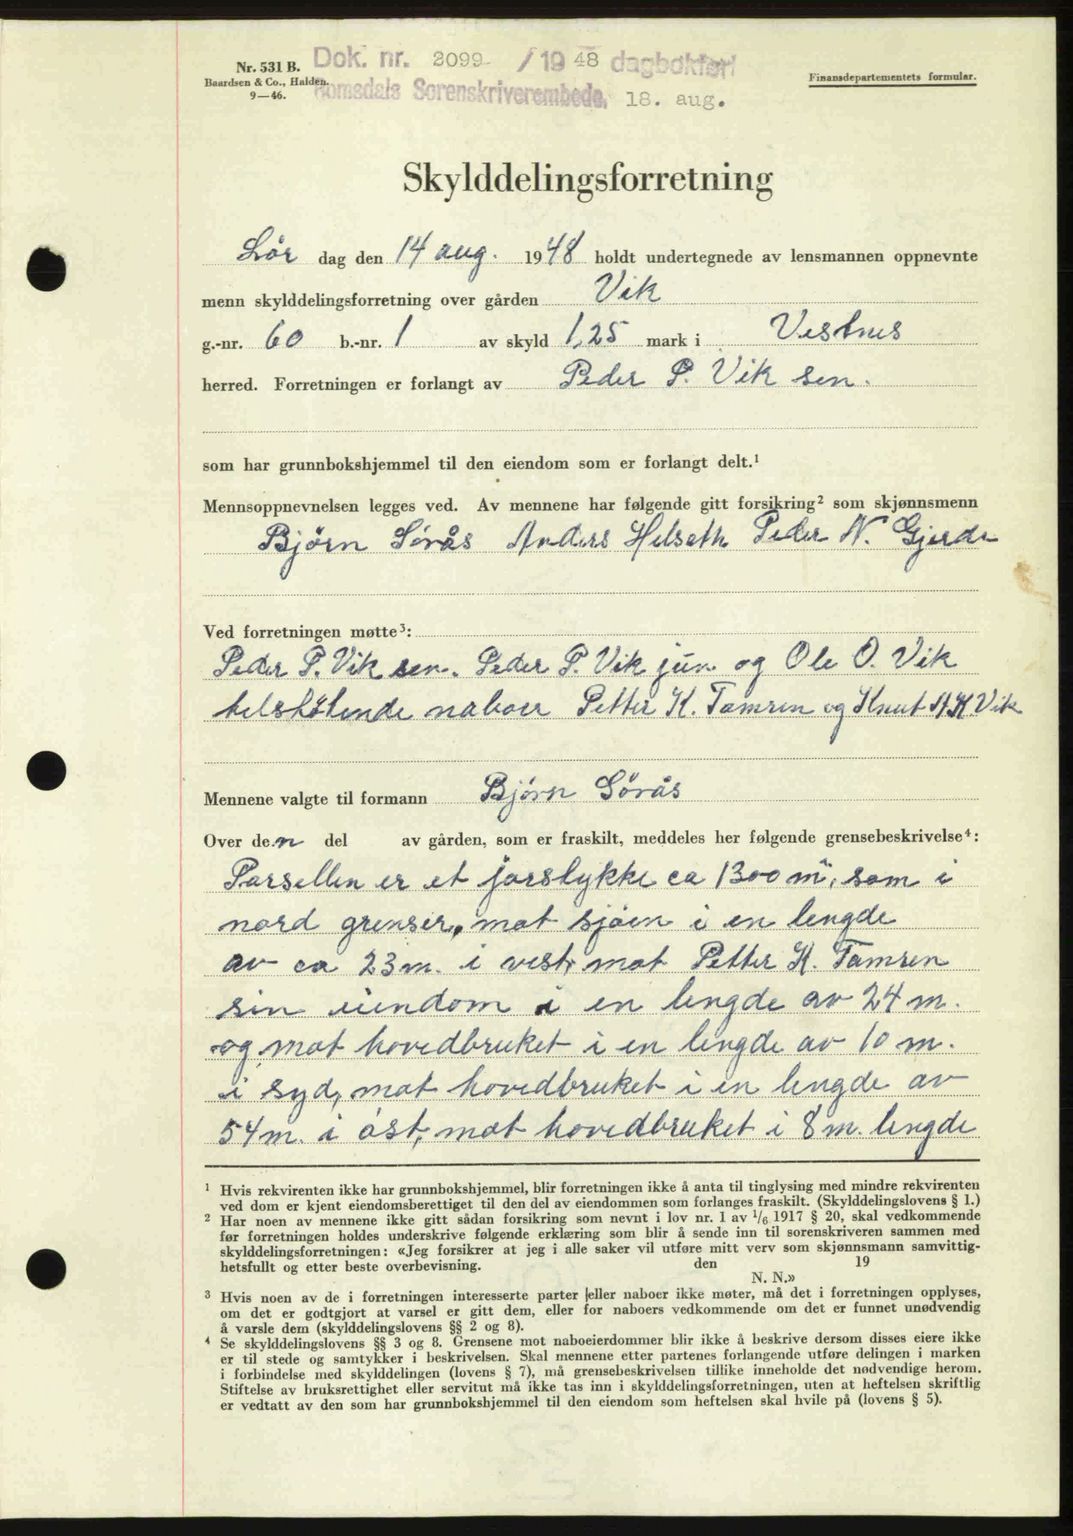 Nr. 531 B.
Baardsen & Co., Halden.
9—46.
Dok. nr. 2099 / 1948 dagbokført
Romsdals Sorenskriverembede, 18. aug.
Finansdepartementets formular.
Skylddelingsforretning
Lør dag den 14 aug. 1948 holdt undertegnede av lensmannen oppnevnte
menn skylddelingsforretning over gården Vik
g.-nr. 60 b.-nr. 1 av skyld 1,25 mark i Vestnes
herred. Forretningen er forlangt av Peder P. Vik sen.
som har grunnbokshjemmel til den eiendom som er forlangt delt.¹
Mennsoppnevnelsen legges ved. Av mennene har følgende gitt forsikring² som skjønnsmenn
Bjørn Sørås Anders Helseth Peder N. Gjerde
Ved forretningen møtte³:
Peder P. Vik sen. Peder P. Vik jun og Ole O. Vik
tilstøtende naboer Petter K. Tamren og Knut K. Vik
Mennene valgte til formann Bjørn Sørås
Over den del av gården, som er fraskilt, meddeles her følgende grensebeskrivelse⁴:
Parsellen er et jorstykke ca 1300 m², som i
nord grenser, mot sjøen i en lengde
av ca 23 m. i vest, mot Petter K. Tamren
sin eiendom i en lengde av 24 m.
og mot hovedbruket i en lengde av 10 m.
i syd, mot hovedbruket i en lengde av
54 m. i øst, mot hovedbruket i 8 m. lengde
¹ Hvis rekvirenten ikke har grunnbokshjemmel, blir forretningen ikke å anta til tinglysing med mindre rekvirenten
ved dom er kjent eiendomsberettiget til den del av eiendommen som forlanges fraskilt. (Skylddelingslovens § 1.)
² Har noen av mennene ikke gitt sådan forsikring som nevnt i lov nr. 1 av 1/6 1917 § 20, skal vedkommende
før forretningen holdes underskrive følgende erklæring som blir å sende inn til sorenskriveren sammen med
skylddelingsforretningen: «Jeg forsikrer at jeg i alle saker vil utføre mitt verv som skjønnsmann samvittig-
hetsfullt og etter beste overbevisning. den 19
N. N.»
³ Hvis noen av de i forretningen interesserte parter eller naboer ikke møter, må det i forretningen opplyses,
om det er godtgjort at varsel er gitt dem, eller for naboers vedkommende om det er funnet unødvendig
å varsle dem (skylddelingslovens §§ 2 og 8).
⁴ Se skylddelingslovens §§ 3 og 8. Grensene mot naboeierdommer blir ikke å beskrive dersom disses eiere ikke
er til stede og samtykker i beskrivelsen. Skal mennene etter partenes forlangende utføre delingen i marken
i forbindelse med skylddelingen (lovens § 7), må grensebeskrivelsen tillike inneholde det nødvendige herom.
Stiftelse av bruksrettighet eller servitut må ikke tas inn i skylddelingsforretningen, uten at heftelsen skriftlig
er vedtatt av den som har grunnbokshjemmel til den eiendom som heftelsen skal hvile på (lovens § 5).